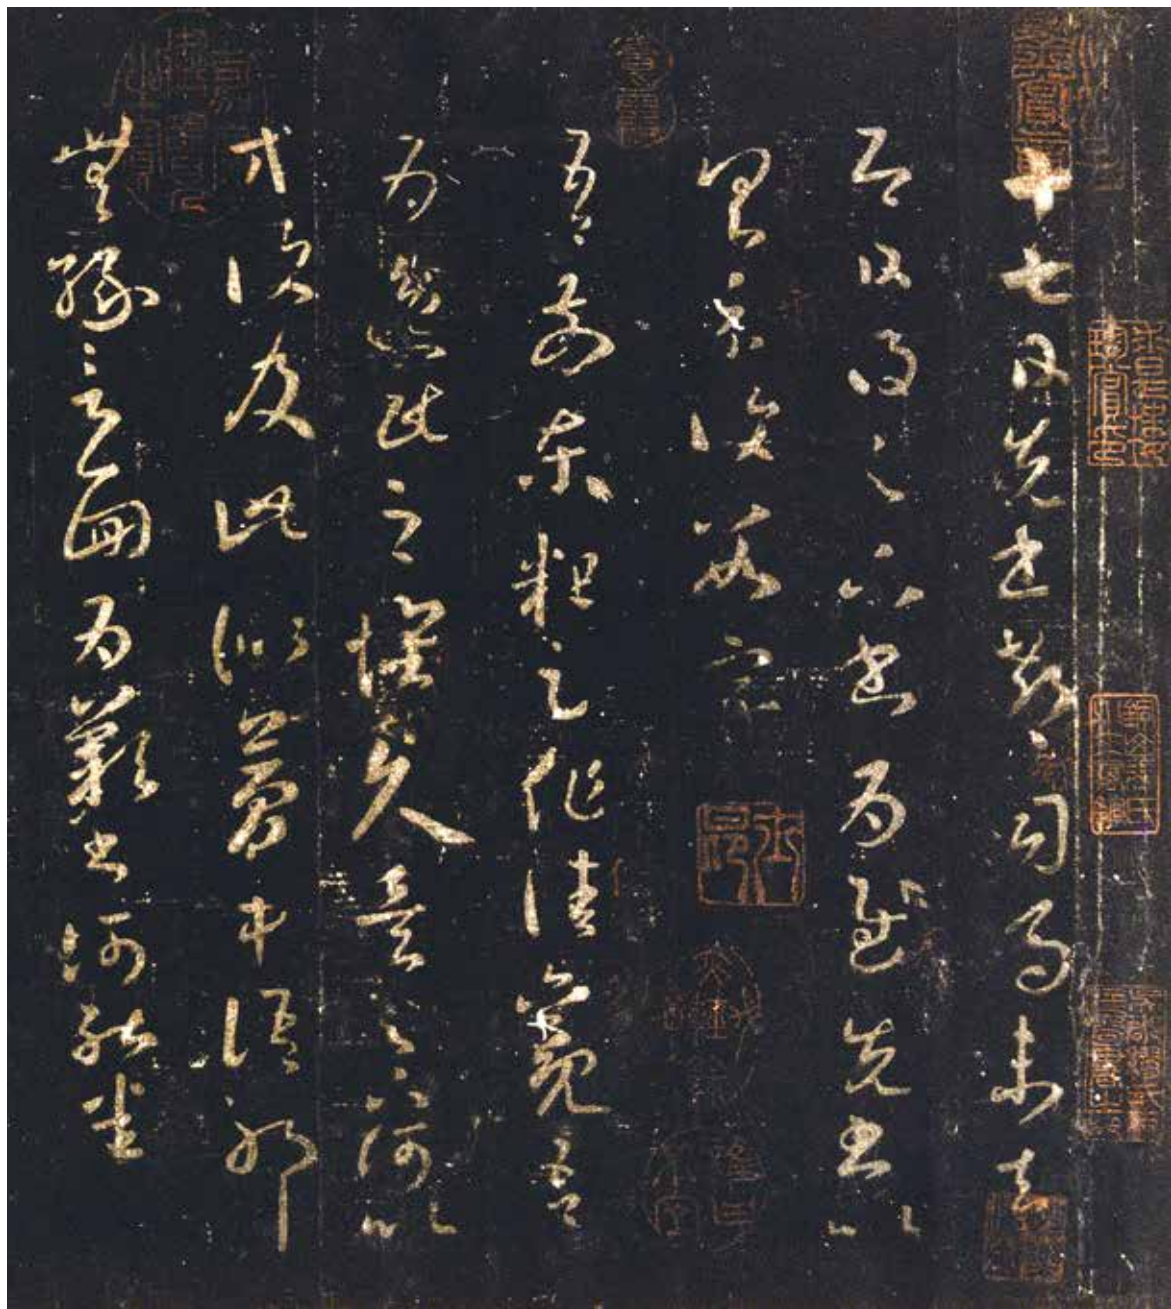 十七日先書郗司馬未去
即日得足下書為慰先書以
具示復數字
吾前東粗足作佳觀吾
為逸民之懷久矣足下何以
方復及此似夢中語耶
無緣言面為歎書何能悉